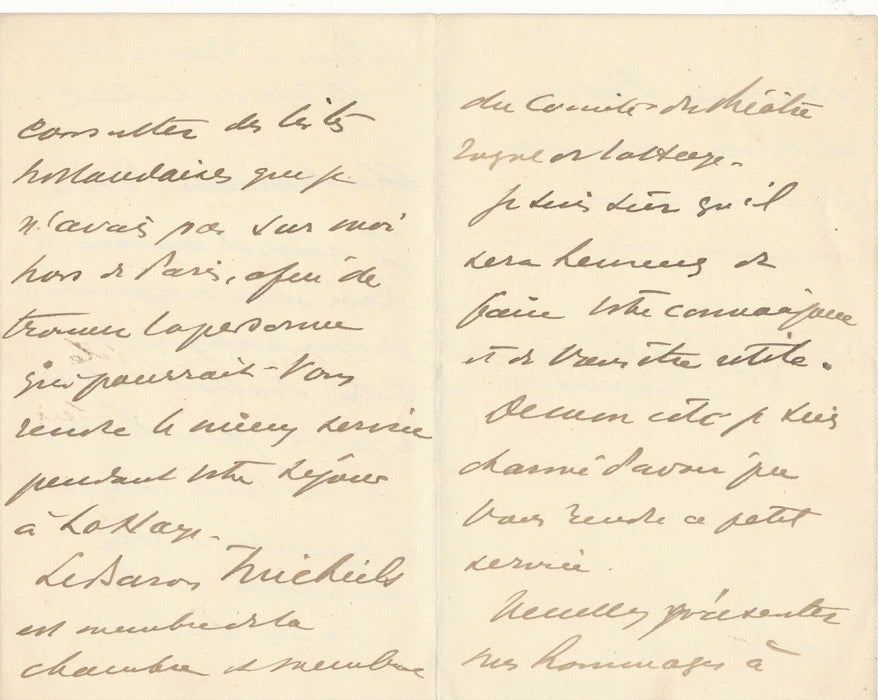 consulter des listes
hollandaises que je
n'avais pas sur moi
hors de Paris, afin de
trouver la personne
qui pourrait Vous
rendre le mieux service
pendant votre séjour
à La Haye.
Le Baron Michiels
est membre de la
chambre et membre
du Comité du théâtre
royal de La Haye.
Je suis sûr qu'il
sera heureux de
faire votre connaissance
et de Vous être utile.
De mon côté je suis
charmé d'avoir pu
Vous rendre ce petit
service.
Veuillez présenter
mes hommages à